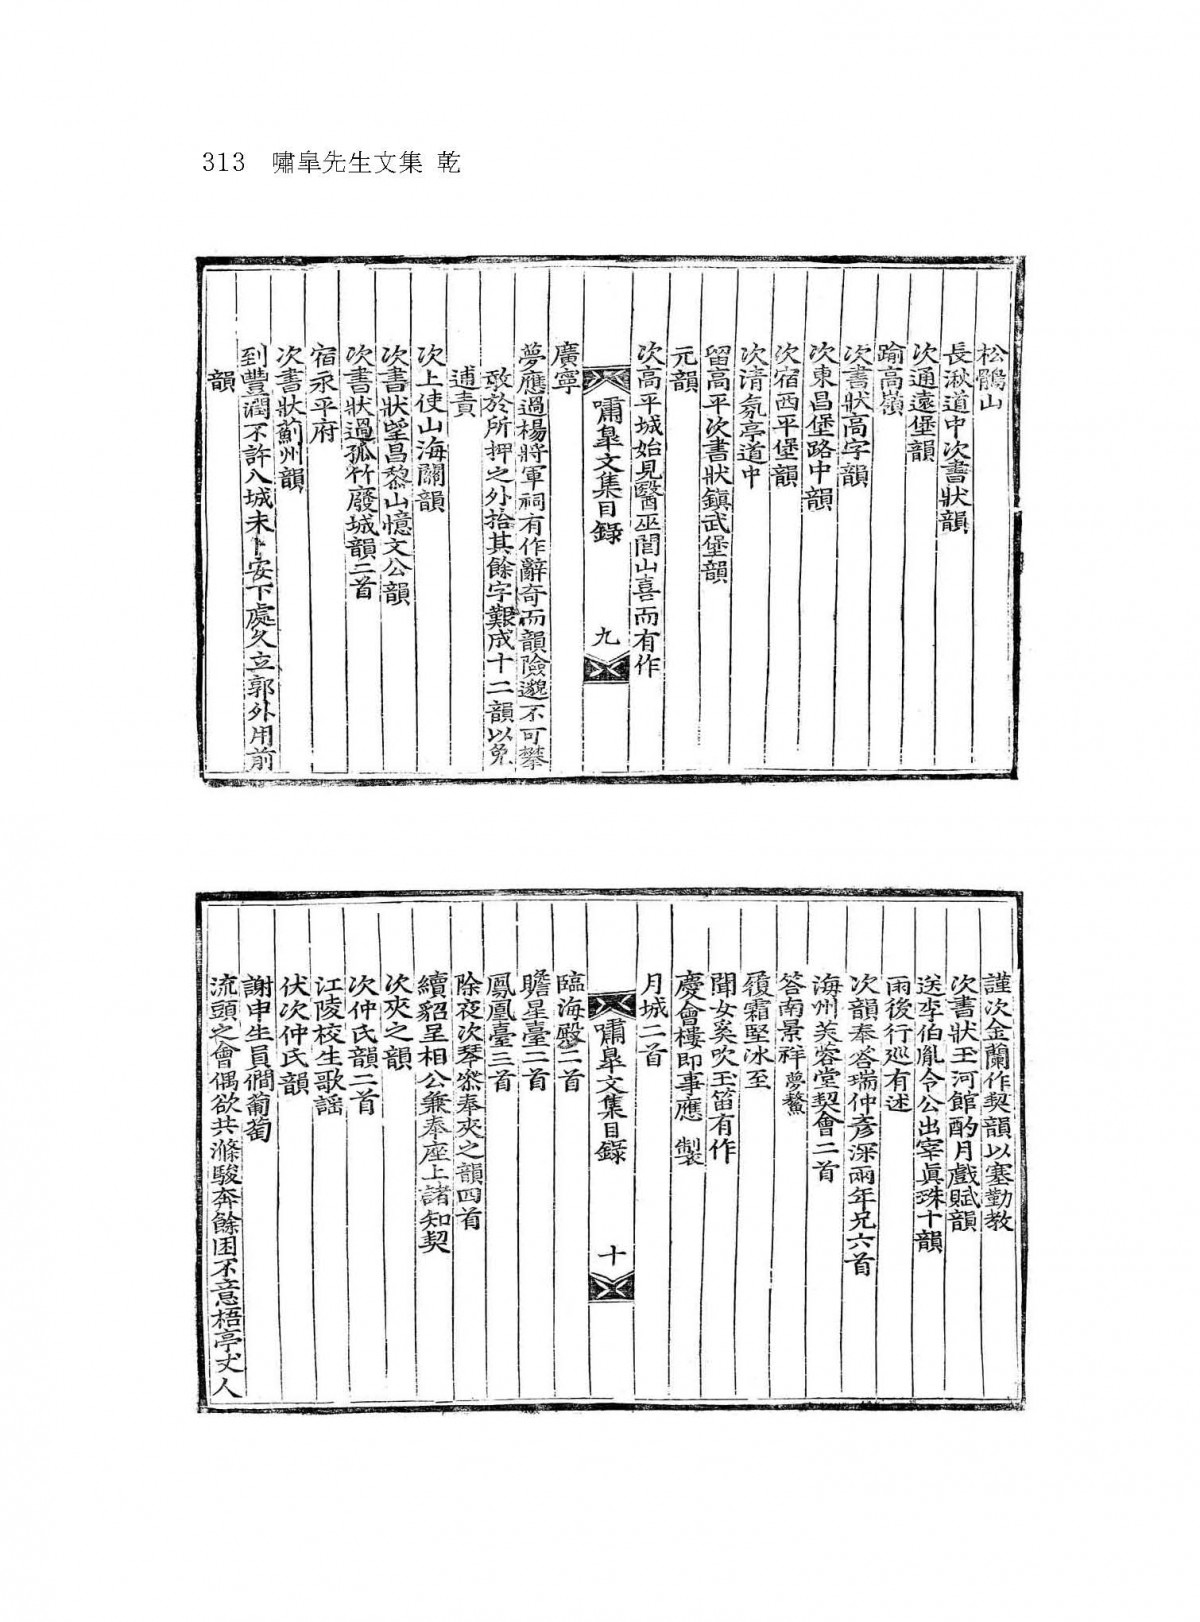 313 嘯皐先生文集 乾
松鶻山
長湫道中次書狀韻
次通遠堡韻
踰高嶺
次書狀高字韻
次東昌堡路中韻
次宿西平堡韻
次淸氛亭道中
留高平次書狀鎭武堡韻
元韻
次高平城始見醫巫閭山喜而有作
嘯皐文集目錄 九
廣寧
夢應過楊將軍祠有作辭奇而韻險邈不可攀
敢於所押之外拾其餘字艱成十二韻以免
逋責
次上使山海關韻
次書狀望昌黎山憶文公韻
次書狀過孤竹廢城韻二首
宿永平府
次書狀薊州韻
到豐潤不許入城未卜安下處久立郭外用前
韻
謹次金蘭作契韻以塞勤教
次書狀玉河館酌月戲賦韻
送李伯胤令公出宰眞珠十韻
雨後行巡有述
次韻奉答瑞仲彥深兩年兄六首
海州芙蓉堂契會二首
答南景祥夢鰲
履霜堅冰至
聞女奚吹玉笛有作
慶會樓卽事應 製
月城二首
嘯皐文集目錄 十
臨海殿二首
瞻星臺二首
鳳凰臺三首
除夜次琴察奉夾之韻四首
續貂呈相公兼奉座上諸知契
次夾之韻
次仲氏韻二首
江陵校生歌謠
伏次仲氏韻
謝申生員僩葡萄
流頭之會偶欲共滌駿奔餘困不意梧亭丈人